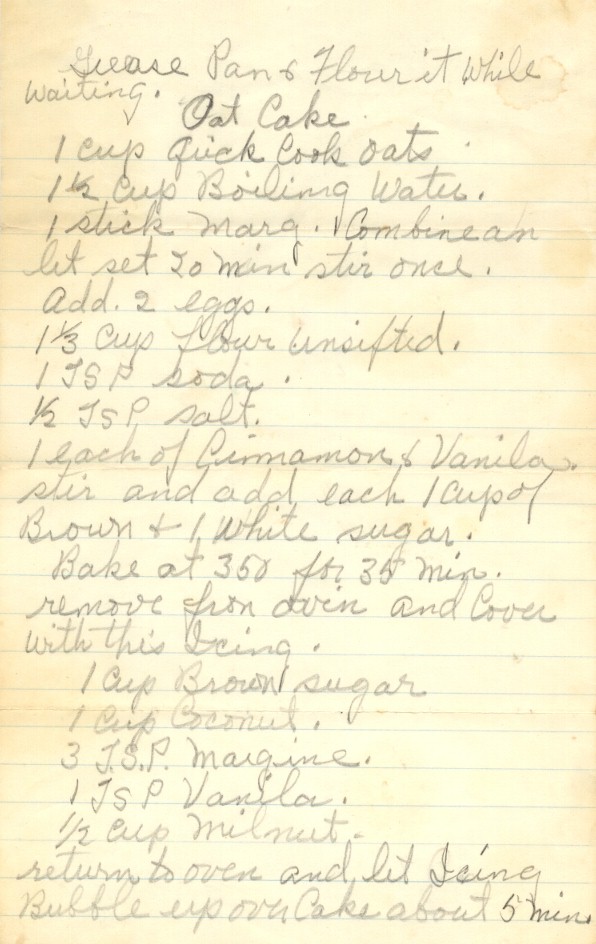 Grease Pan & Flour it While
waiting.
Oat Cake
1 cup Quick Cook Oats
1½ Cup Boiling Water.
1 stick Marg. Combine an
let set 20 min stir once.
Add. 2 eggs.
1⅓ Cup flour unsifted.
1 TSP soda.
½ TSP salt.
1 each of Cinnamon & Vanila.
stir and add each 1 Cup of
Brown & 1 White sugar.
Bake at 350 for 35 min.
remove fron ovin and Cover
with this Icing.
1 Cup Brown sugar
1 Cup Coconut.
3 T.S.P. Margine.
1 TSP Vanila.
1/2 Cup Milnut.
return to oven and let Icing
Bubble up over Cake about 5 min.